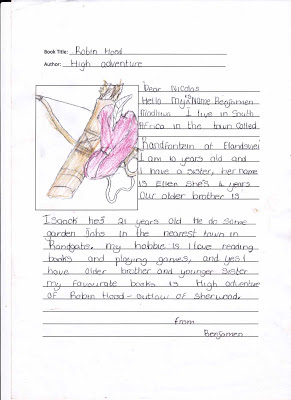 Book Title: Robin Hood
Author: High adventure
Dear Nicolas
Hello My is Name Benjamen
I live in South
Africa in the town called
Randfontein at Elandsvlei
I am 10 years old and
I have a sister, her name
is Ellen She's 4 years
Our older brother is
Isaack he's 21 years old He do some
garden jobs in the nearest town in
Randgate. my hobbie is I love reading
books and playing games, and yes I
have older brother and younger sister
my favourate books is High adventure
of Robin Hood - outlow of sherwood.
from
Benjamen